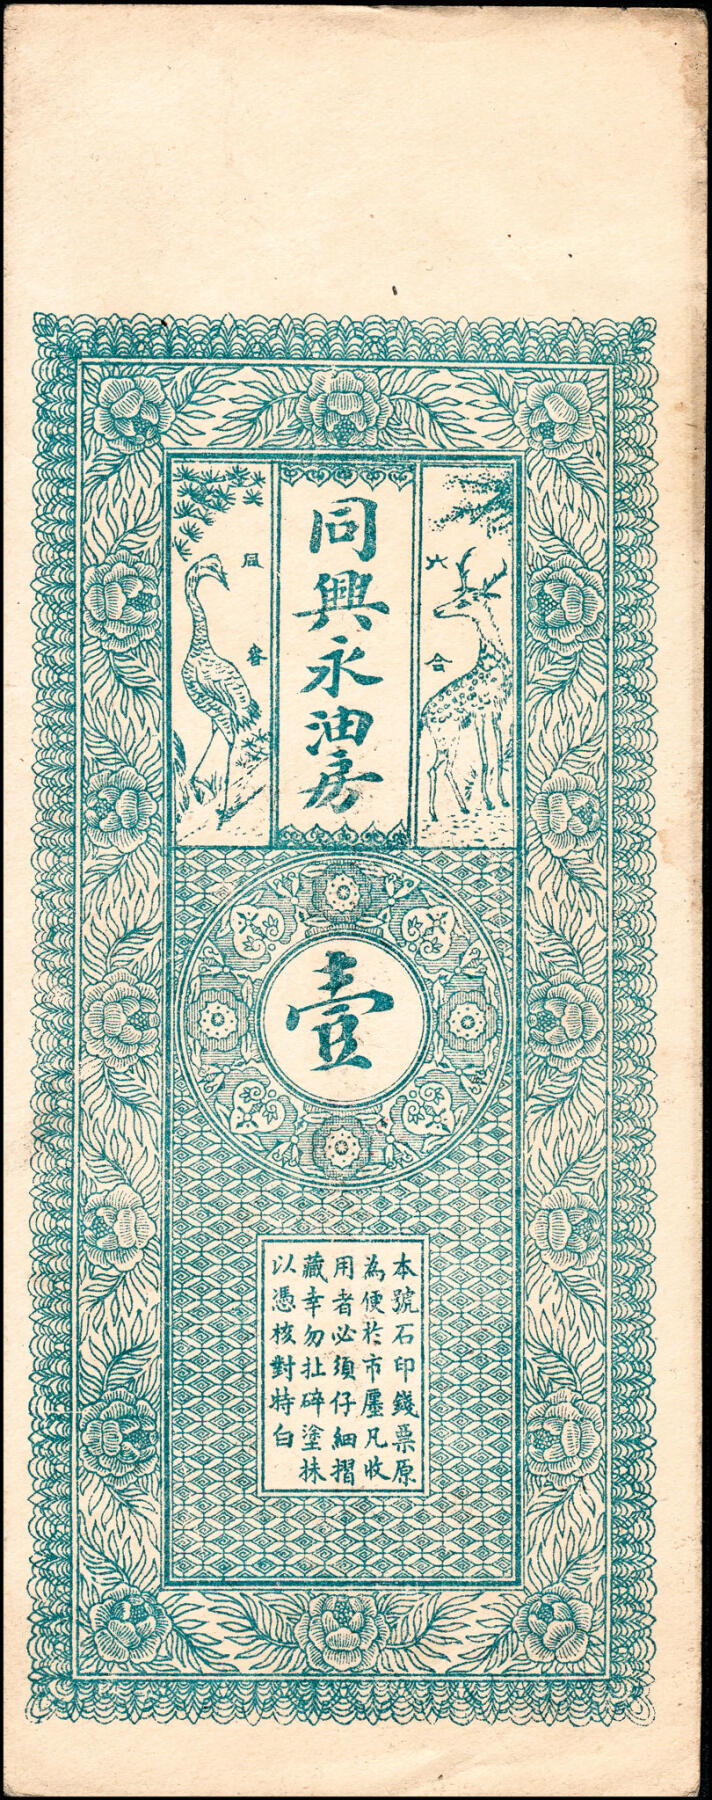 同興永油房
六合
同春
壹
本號石印錢票原
為便於市廛凡收
用者必須仔細摺
藏幸勿扯碎塗抹
以憑核對特白